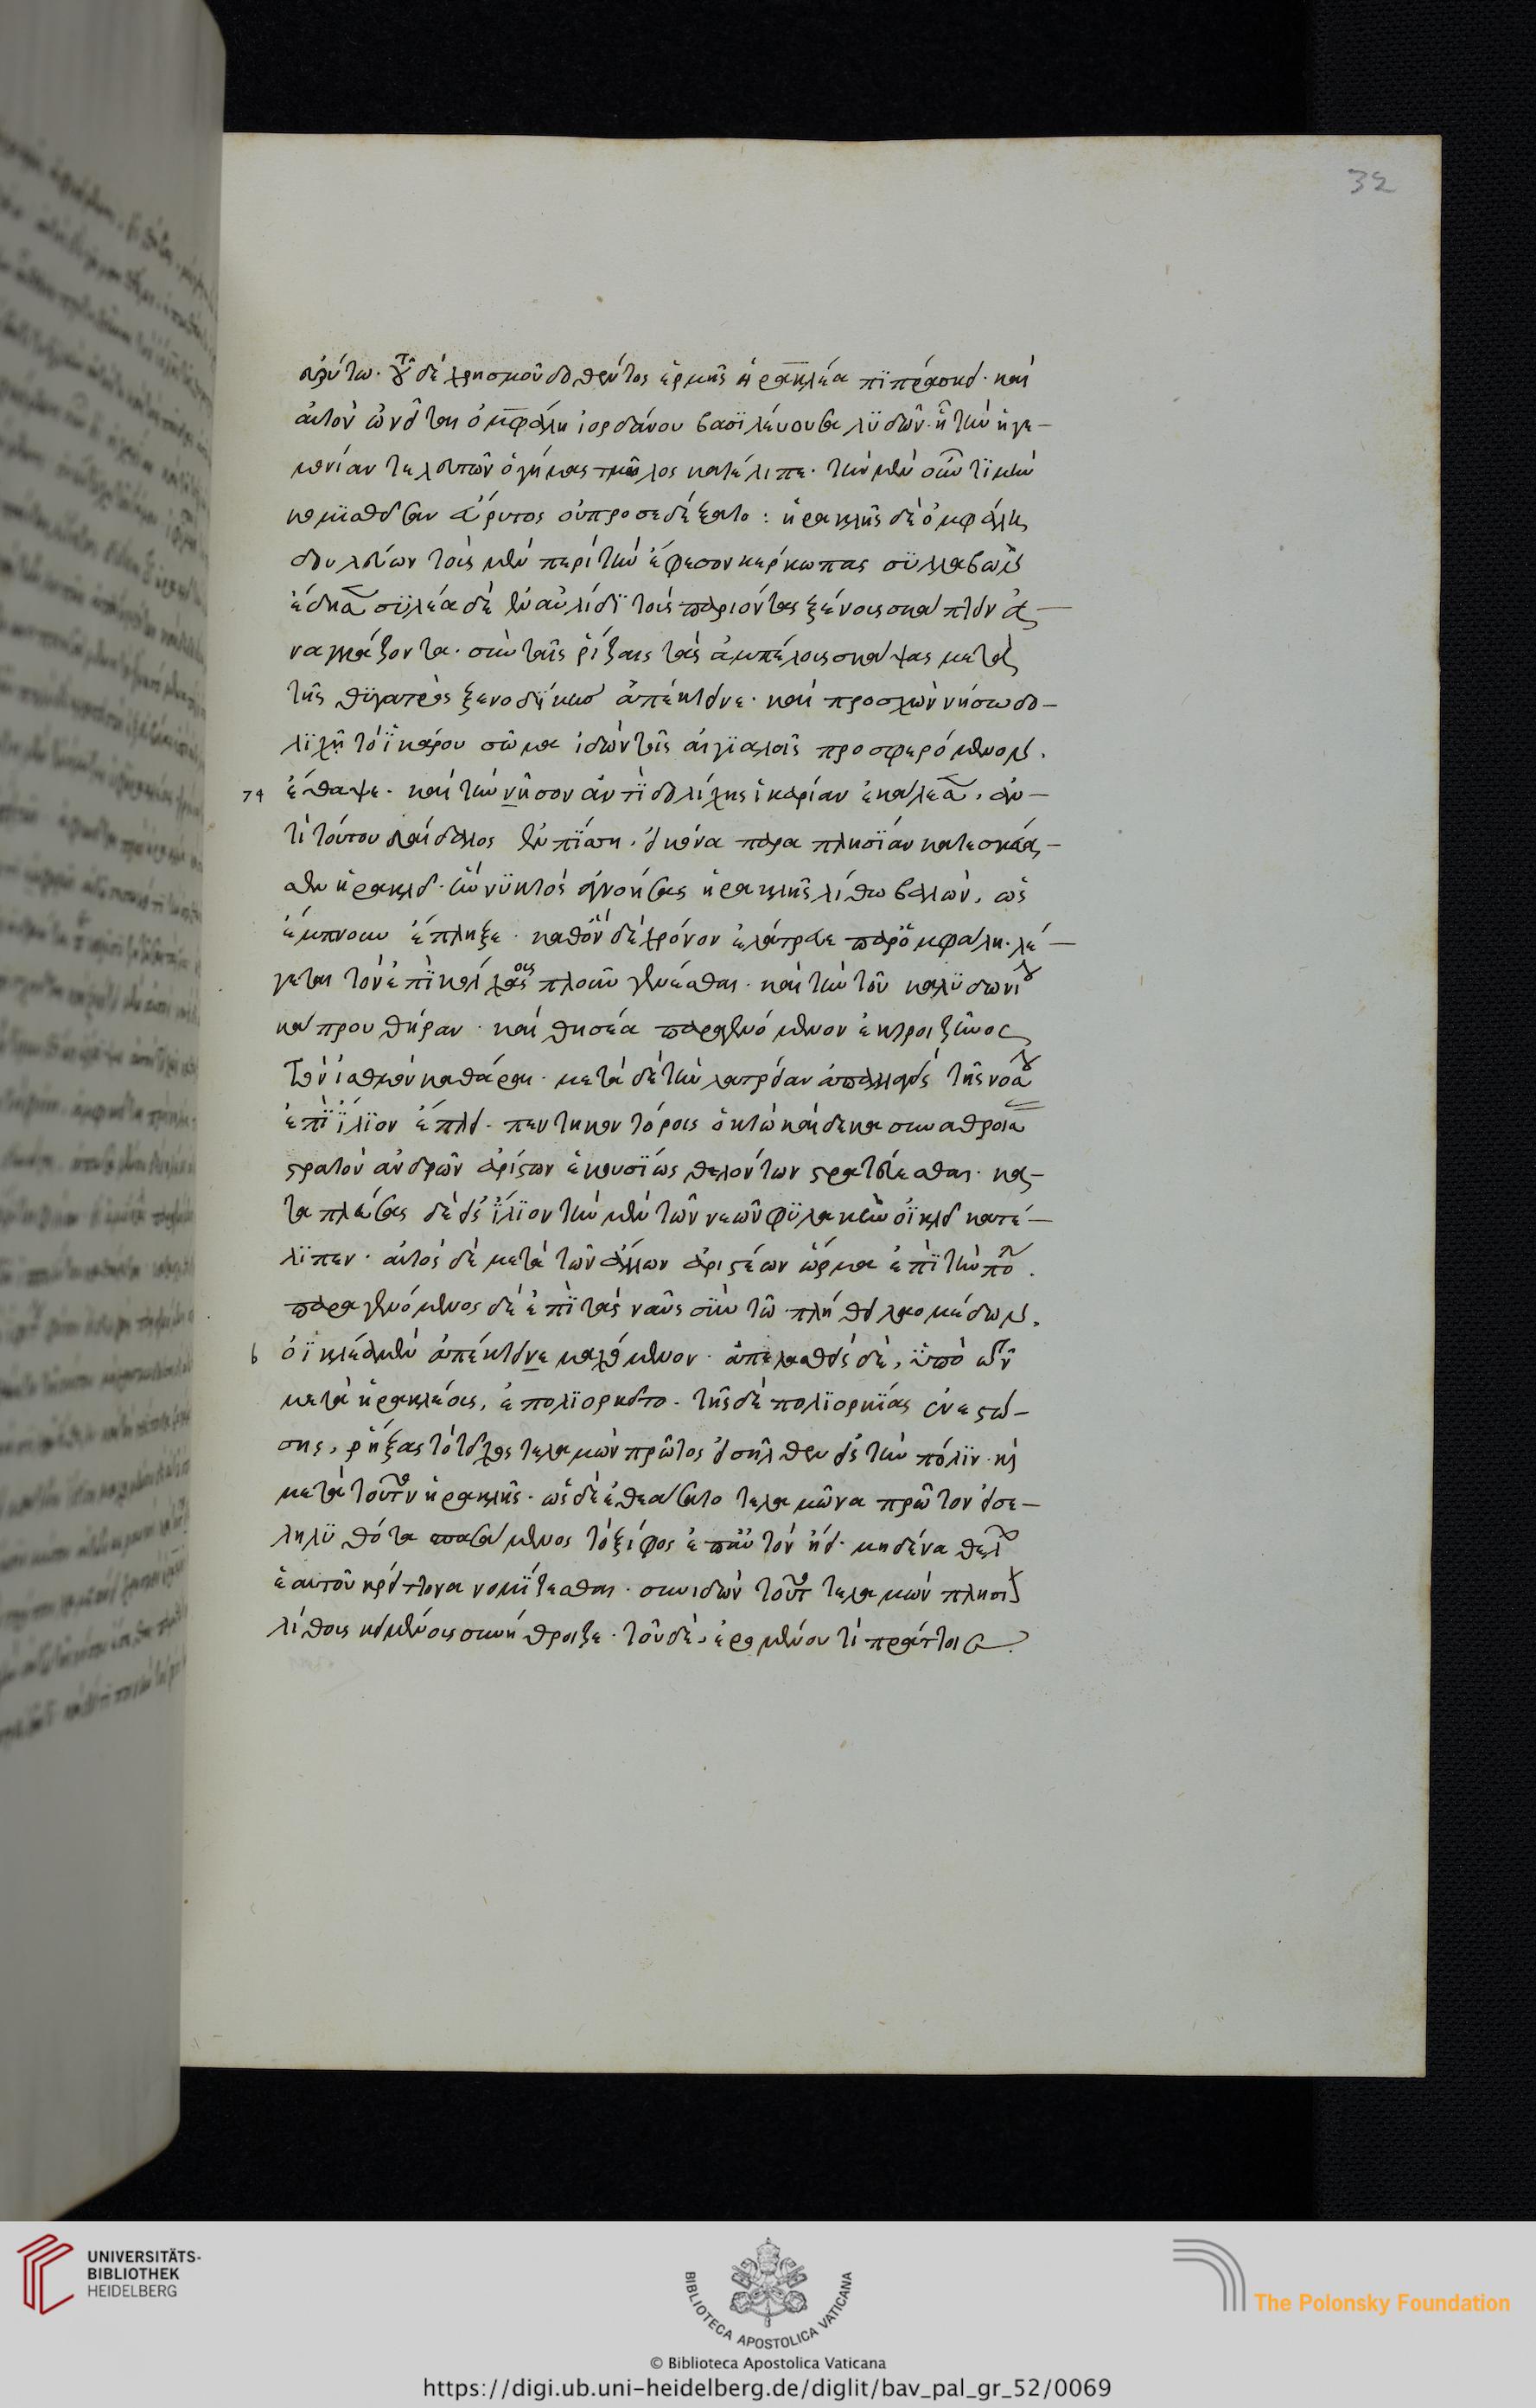 32
εὐρύτω. τοῦ δὲ χρησμοῦ δοθέντος ἑρμῆς ἡρακλέα πιπράσκει. καὶ
αὐτὸν ὠνεῖται ὀμφάλη ἰορδάνου βασιλεύουσα λυδῶν. ᾗ τὴν ἡγε-
μονίαν τελευτῶν ὁ γήμας τμῶλος κατέλιπε. τὴν μὲν οὖν τιμὴν
κομισθεῖσαν εὔρυτος οὐ προσεδέξατο: ἡρακλῆς δὲ ὀμφάλη
δουλεύων τοὺς μὲν περὶ τὴν ἔφεσον κέρκωπας συλλαβὼν
ἔδησε συλέα δὲ ἐν αὐλίδι τοὺς παριόντας ξένους σκάπτειν ἀ-
ναγκάζοντα. σὺν ταῖς ῥίζαις τὰς ἀμπέλους σκάψας μετὰ
τῆς θυγατρὸς ξενοδίκης ἀπέκτεινε. καὶ προσχὼν νήσω δο-
λίχῃ τὸ ἰκάρου σῶμα ἰδὼν τοῖς αἰγιαλοῖς προσφερόμενον,
74 ἔθαψε. καὶ τὴν νῆσον ἀντὶ δολίχης ἰκαρίαν ἐκάλεσεν, ἀν-
τὶ τούτου δαίδαλος ἐν πίση, εἰκόνα παραπλησίαν κατεσκευά-
σεν ἡρακλεῖ. ἣν νυκτὸς ἀγνοήσας ἡρακλῆς λίθω βαλὼν, ὡς
ἔμπνουν ἔπληξε. καθ' ὃν δὲ χρόνον ἐλάτρευε παρ' ὀμφάλη. λέ-
γεται τὸν ἐπὶ κόλχους πλοῦν γενέσθαι. καὶ τὴν τοῦ καλυδωνίου
κάπρου θήραν. καὶ θησέα παραγενόμενον ἐκ τροιζῆνος
τὸν ἰσθμὸν καθάραι. μετὰ δὲ τὴν λατρείαν ἀπαλλαγεὶς τῆς νόσου
ἐπὶ ἴλιον ἔπλει. πεντηκοντόροις ὀκτωκαίδεκα συναθροίσας
στρατὸν ἀνδρῶν ἀρίστων ἑκουσίως θελόντων στρατεύεσθαι. κα-
ταπλεύσας δὲ εἰς ἴλιον τὴν μὲν τῶν νεῶν φυλακὴν οἰκλεῖ κατέ-
λιπεν. αὐτὸς δὲ μετὰ τῶν ἄλλων ἀριστέων ὥρμα ἐπὶ τὴν πόλιν.
παραγενόμενος δὲ ἐπὶ τὰς ναῦς σὺν τῶ πλήθει λαομέδων,
b ὀϊκλέα μὲν ἀπέκτεινε μαχόμενον. ἀπελασθεὶς δὲ, ὑπὸ τῶν
μετὰ ἡρακλέους, ἐπολιορκεῖτο. τῆς δὲ πολιορκίας ἐνεστώ-
σης, ῥήξας τὸ τεῖχος τελαμὼν πρῶτος εἰσῆλθεν εἰς τὴν πόλιν. καὶ
μετὰ τοῦτον ἡρακλῆς. ὡς δὲ ἐθεάσατο τελαμῶνα πρῶτον εἰσε-
ληλυθότα σπασάμενος τὸ ξίφος ἐπ' αὐτὸν ᾔει. μηδένα θέλων
ἑαυτοῦ κρείττονα νομίζεσθαι. συνιδὼν τοῦτο τελαμὼν πλησίον
λίθους κειμένους συνήθροιζε. τοῦ δὲ, ἐρομένου τί πράττοι
UNIVERSITÄTS-
BIBLIOTHEK
HEIDELBERG
BIBLIOTECA APOSTOLICA VATICANA
© Biblioteca Apostolica Vaticana
The Polonsky Foundation
https://digi.ub.uni-heidelberg.de/diglit/bav_pal_gr_52/0069